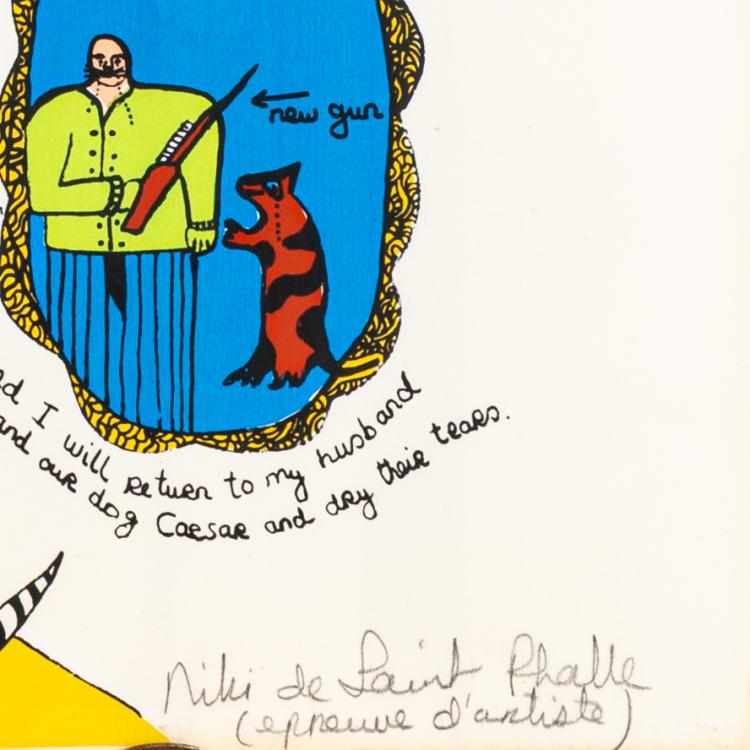 new gun
I will return to my husband
and our dog Caesar and dry their tears.
Niki de Saint Phalle
(epreuve d'artiste)